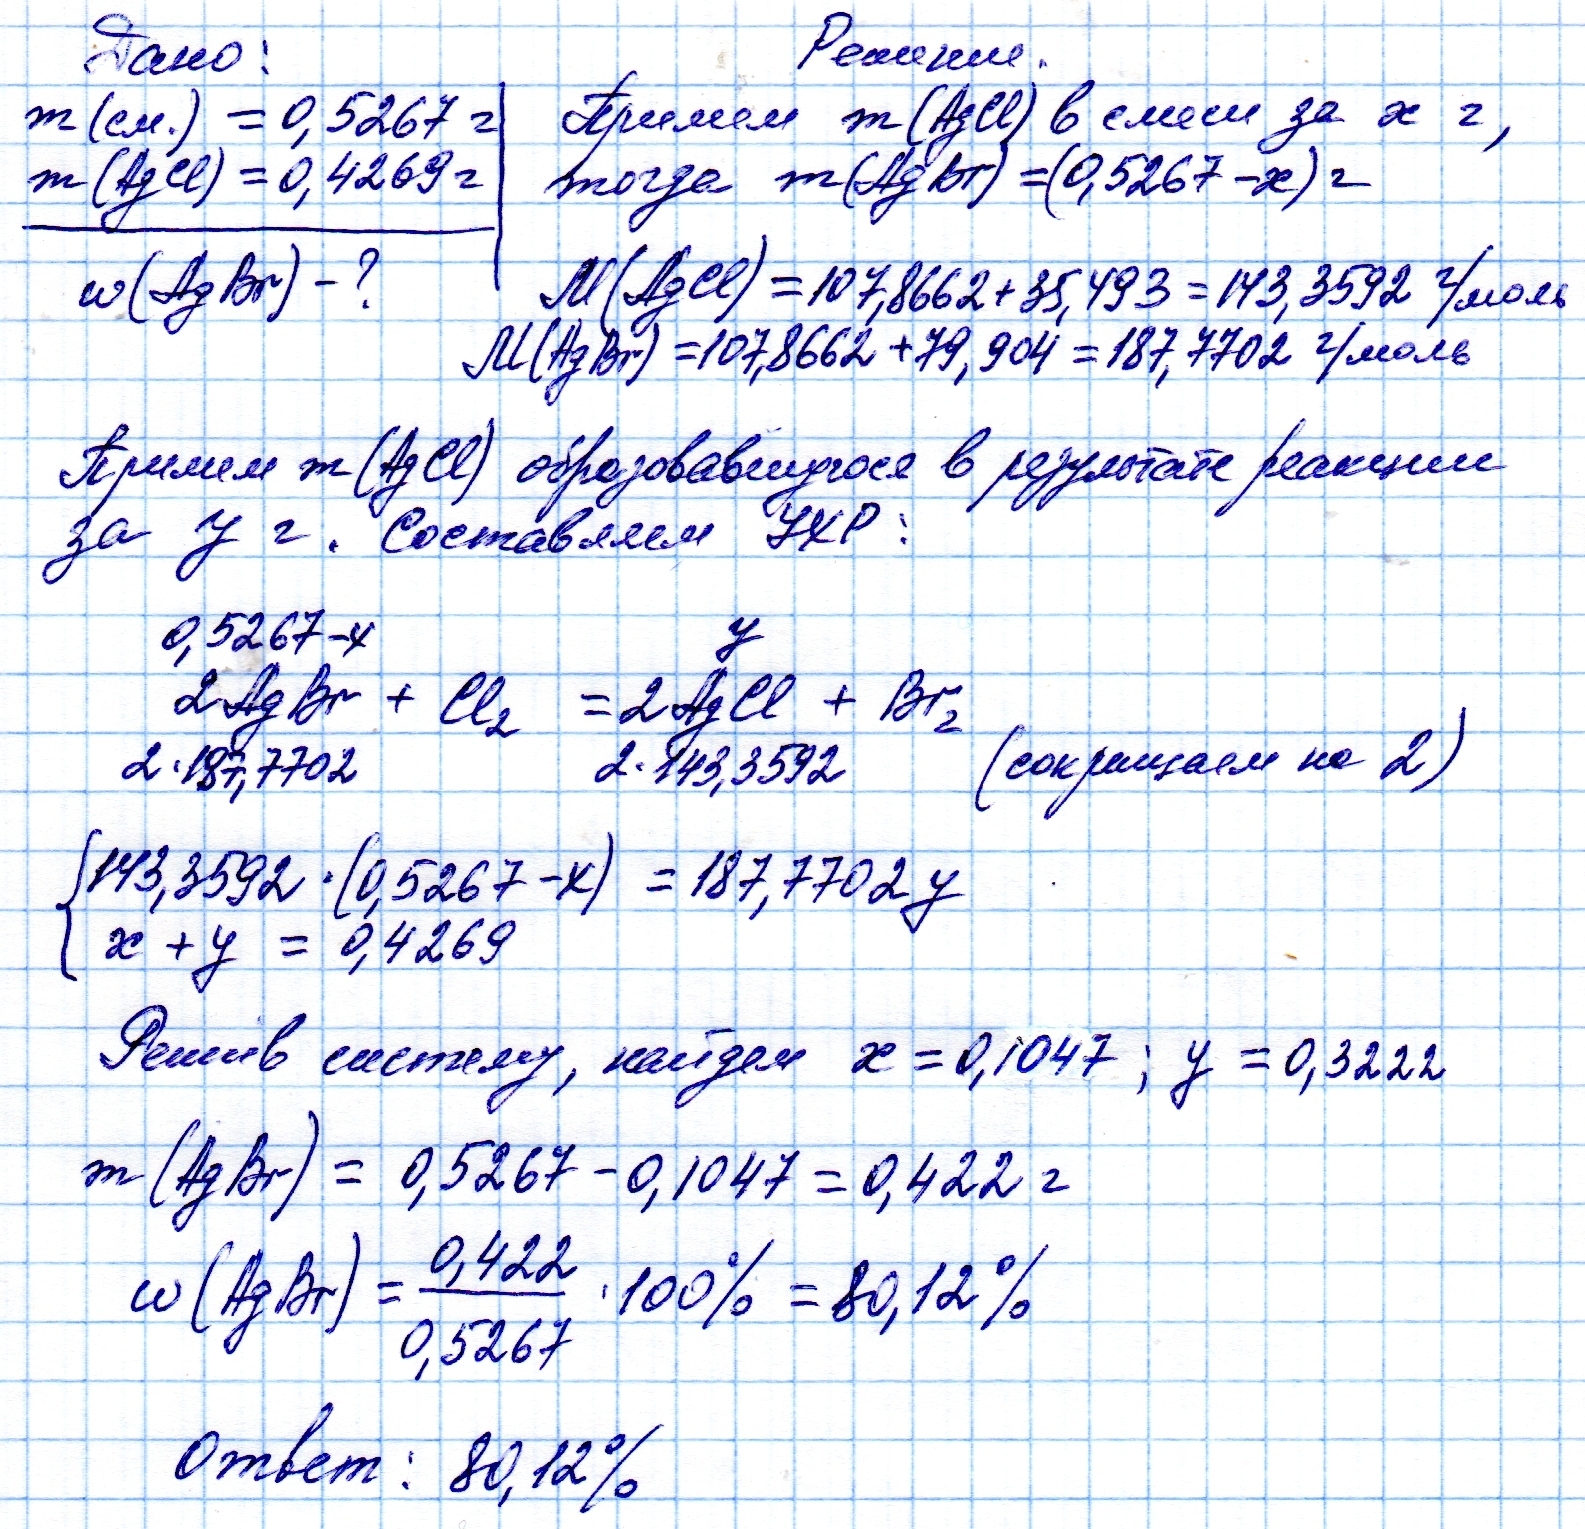 Дано:
Решение.
m(см.) = 0,5267 г
m(AgCl) = 0,4269 г
w(AgBr) - ?
Примем m(AgCl) в смеси за x г,
тогда m(AgBr) = (0,5267 - x) г
M(AgCl) = 107,8662 + 35,493 = 143,3592 г/моль
M(AgBr) = 107,8662 + 79,904 = 187,7702 г/моль
Примем m(AgCl) образовавшегося в результате реакции
за y г. Составляем УХР:
0,5267-x y
2AgBr + Cl₂ = 2AgCl + Br₂
2·187,7702 2·143,3592 (сокращаем на 2)
143,3592·(0,5267-x) = 187,7702y
x + y = 0,4269
Решив систему, найдем x = 0,1047; y = 0,3222
m(AgBr) = 0,5267 - 0,1047 = 0,422 г
w(AgBr) = 0,422/0,5267 · 100% = 80,12%
Ответ: 80,12%